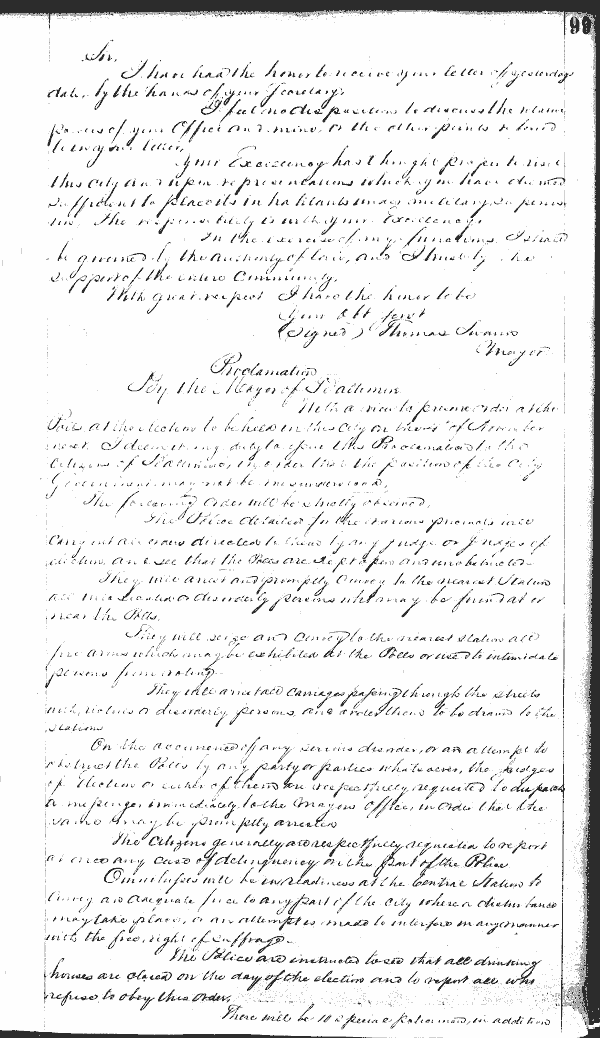 99
Sir,
I have had the honor to receive your letter of yesterdays
date, by the hands of your Secretary.
I feel no disposition to discuss the relative
powers of your Office and mine, or the other points referred
to in your letter.
Your Excellency has thought proper to visit
this city and upon representations which you have deemed
sufficient to place its inhabitants under military supervis
ion. The responsibility is with your Excellency.
In the exercise of my functions, I shall
be governed by the authority of law, and I trust by the
support of the entire Community.
With great respect I have the honor to be
Your Obt Servt
(Signed) Thomas Swann
Mayor
Proclamation
By the Mayor of Baltimore.
With a view to preserve order at the
Polls at the election to be held in this City on the of November
next. I deem it my duty to issue this Proclamation to the
Citizens of Baltimore, in order that the position of the City
Government may not be misunderstood.
The following order will be strictly observed.
The Police detailed for the various precincts will
carry out all orders directed to them by any judge or judges of
election, and see that the Polls are kept open and unobstructed.
They will arrest and promptly convey to the nearest Station
all intoxicated or disorderly persons who may be found at or
near the Polls.
They will seize and convey to the nearest station all
fire arms which may be exhibited at the Polls or used to intimidate
persons from voting.
They will arrest all carriages passing through the streets
with riotous or disorderly persons, and order them to be drawn to the
stations
On the occurrence of any serious disorder, or an attempt to
obstruct the Polls by any party or parties whatsoever, the judges
of Election or either of them are respectfully requested to dispatch
a messenger immediately to the Mayors Office, in order that the
same may be promptly arrested
The Citizens generally are respectfully requested to report
at once any case of delinquency on the part of the Police.
Omnibusses will be in readiness at the Central Station to
convey an adequate force to any part of the city where a disturbance
may take place, or an attempt is made to interfere in any manner
with the free right of suffrage.
The Police are instructed to see that all drinking
houses are closed on the day of the election and to report all who
refuse to obey this order.
There will be 10 special policemen, in addition